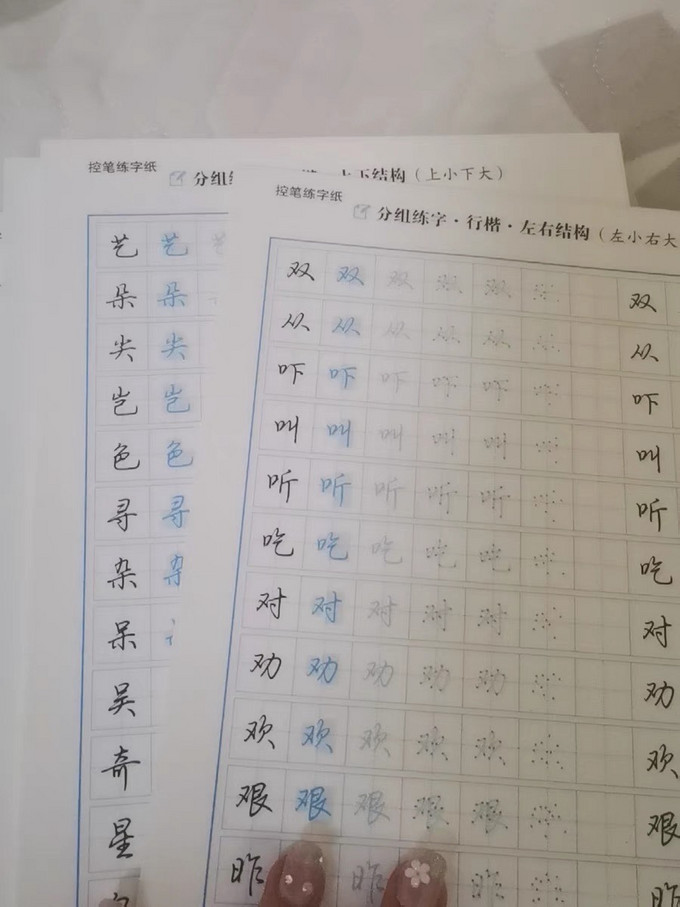 控笔练字纸
分组 上下结构（上小下大）
艺 艺 艺
朵 朵
尖 尖
岂 岂
色 色
寻 寻
杂 杂
呆
吴
奇
星
控笔练字纸
分组练字·行楷·左右结构（左小右大
双 双 双 双 双 双
从 从 从 从 从 从
吓 吓 吓 吓 吓 吓
叫 叫 叫 叫 叫 叫
听 听 听 听 听 听
吃 吃 吃 吃 吃 吃
对 对 对 对 对 对
劝 劝 劝 劝 劝 劝
欢 欢 欢 欢 欢 欢
艰 艰 艰 艰 艰 艰
昨 昨 昨 昨